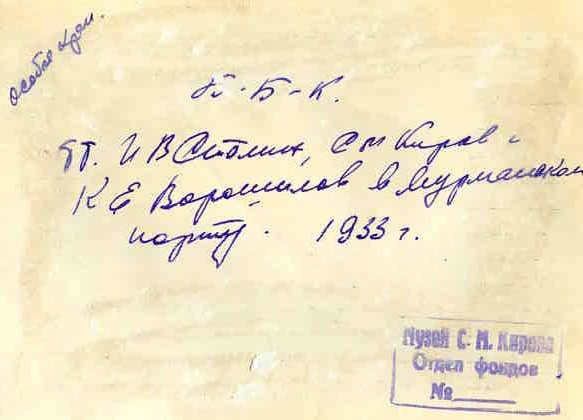 особое хран.
Б-Б-К.
тт. И В Сталин, С М Киров и
К Е Ворошилов в Мурманском
порту. 1933 г.
Музей С. М. Кирова
Отдел фондов
№